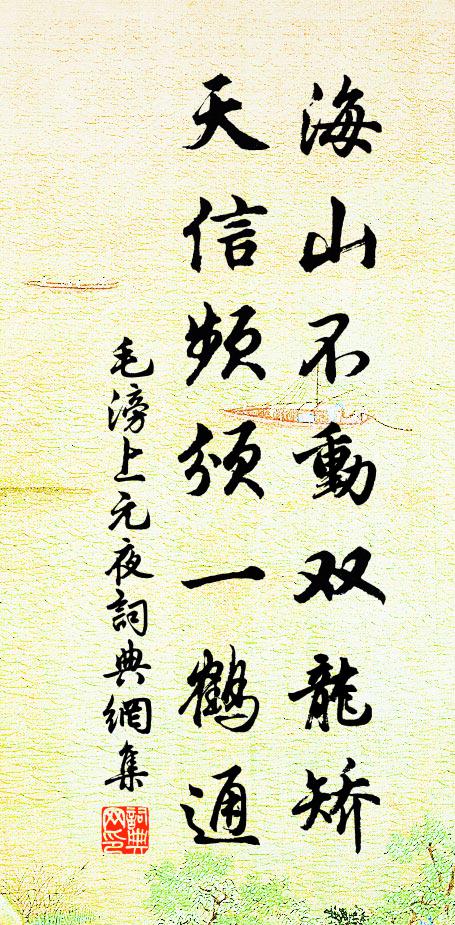 海山不動双龍矯
天信頻頒一鶴通
毛滂上元夜詞典網集
詞典网印